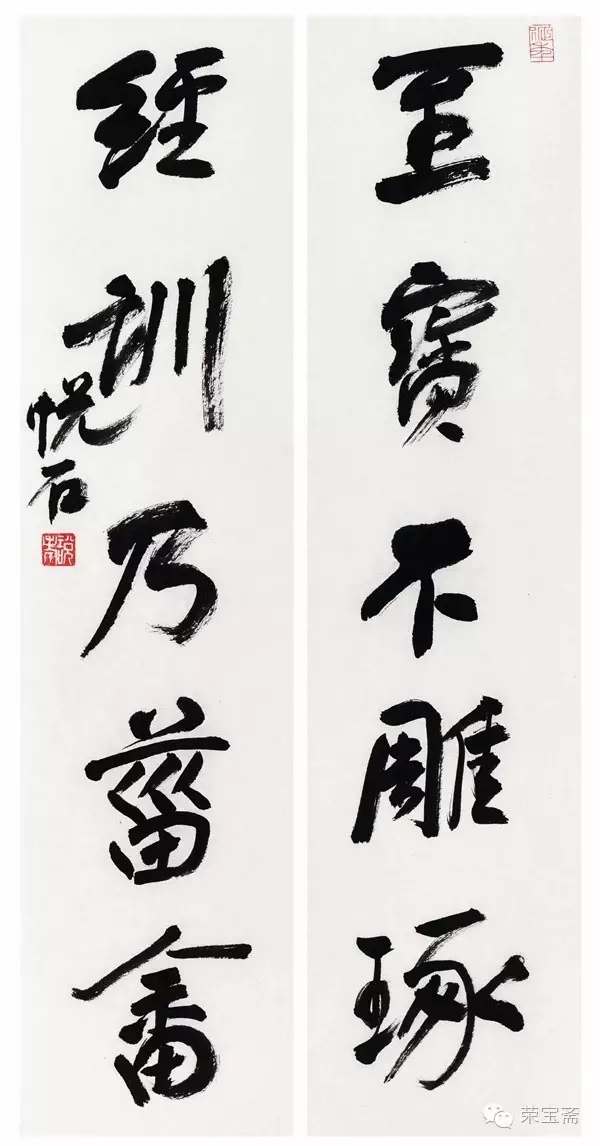 至寶不雕琢
經訓乃菑畬
悦石
荣宝斋